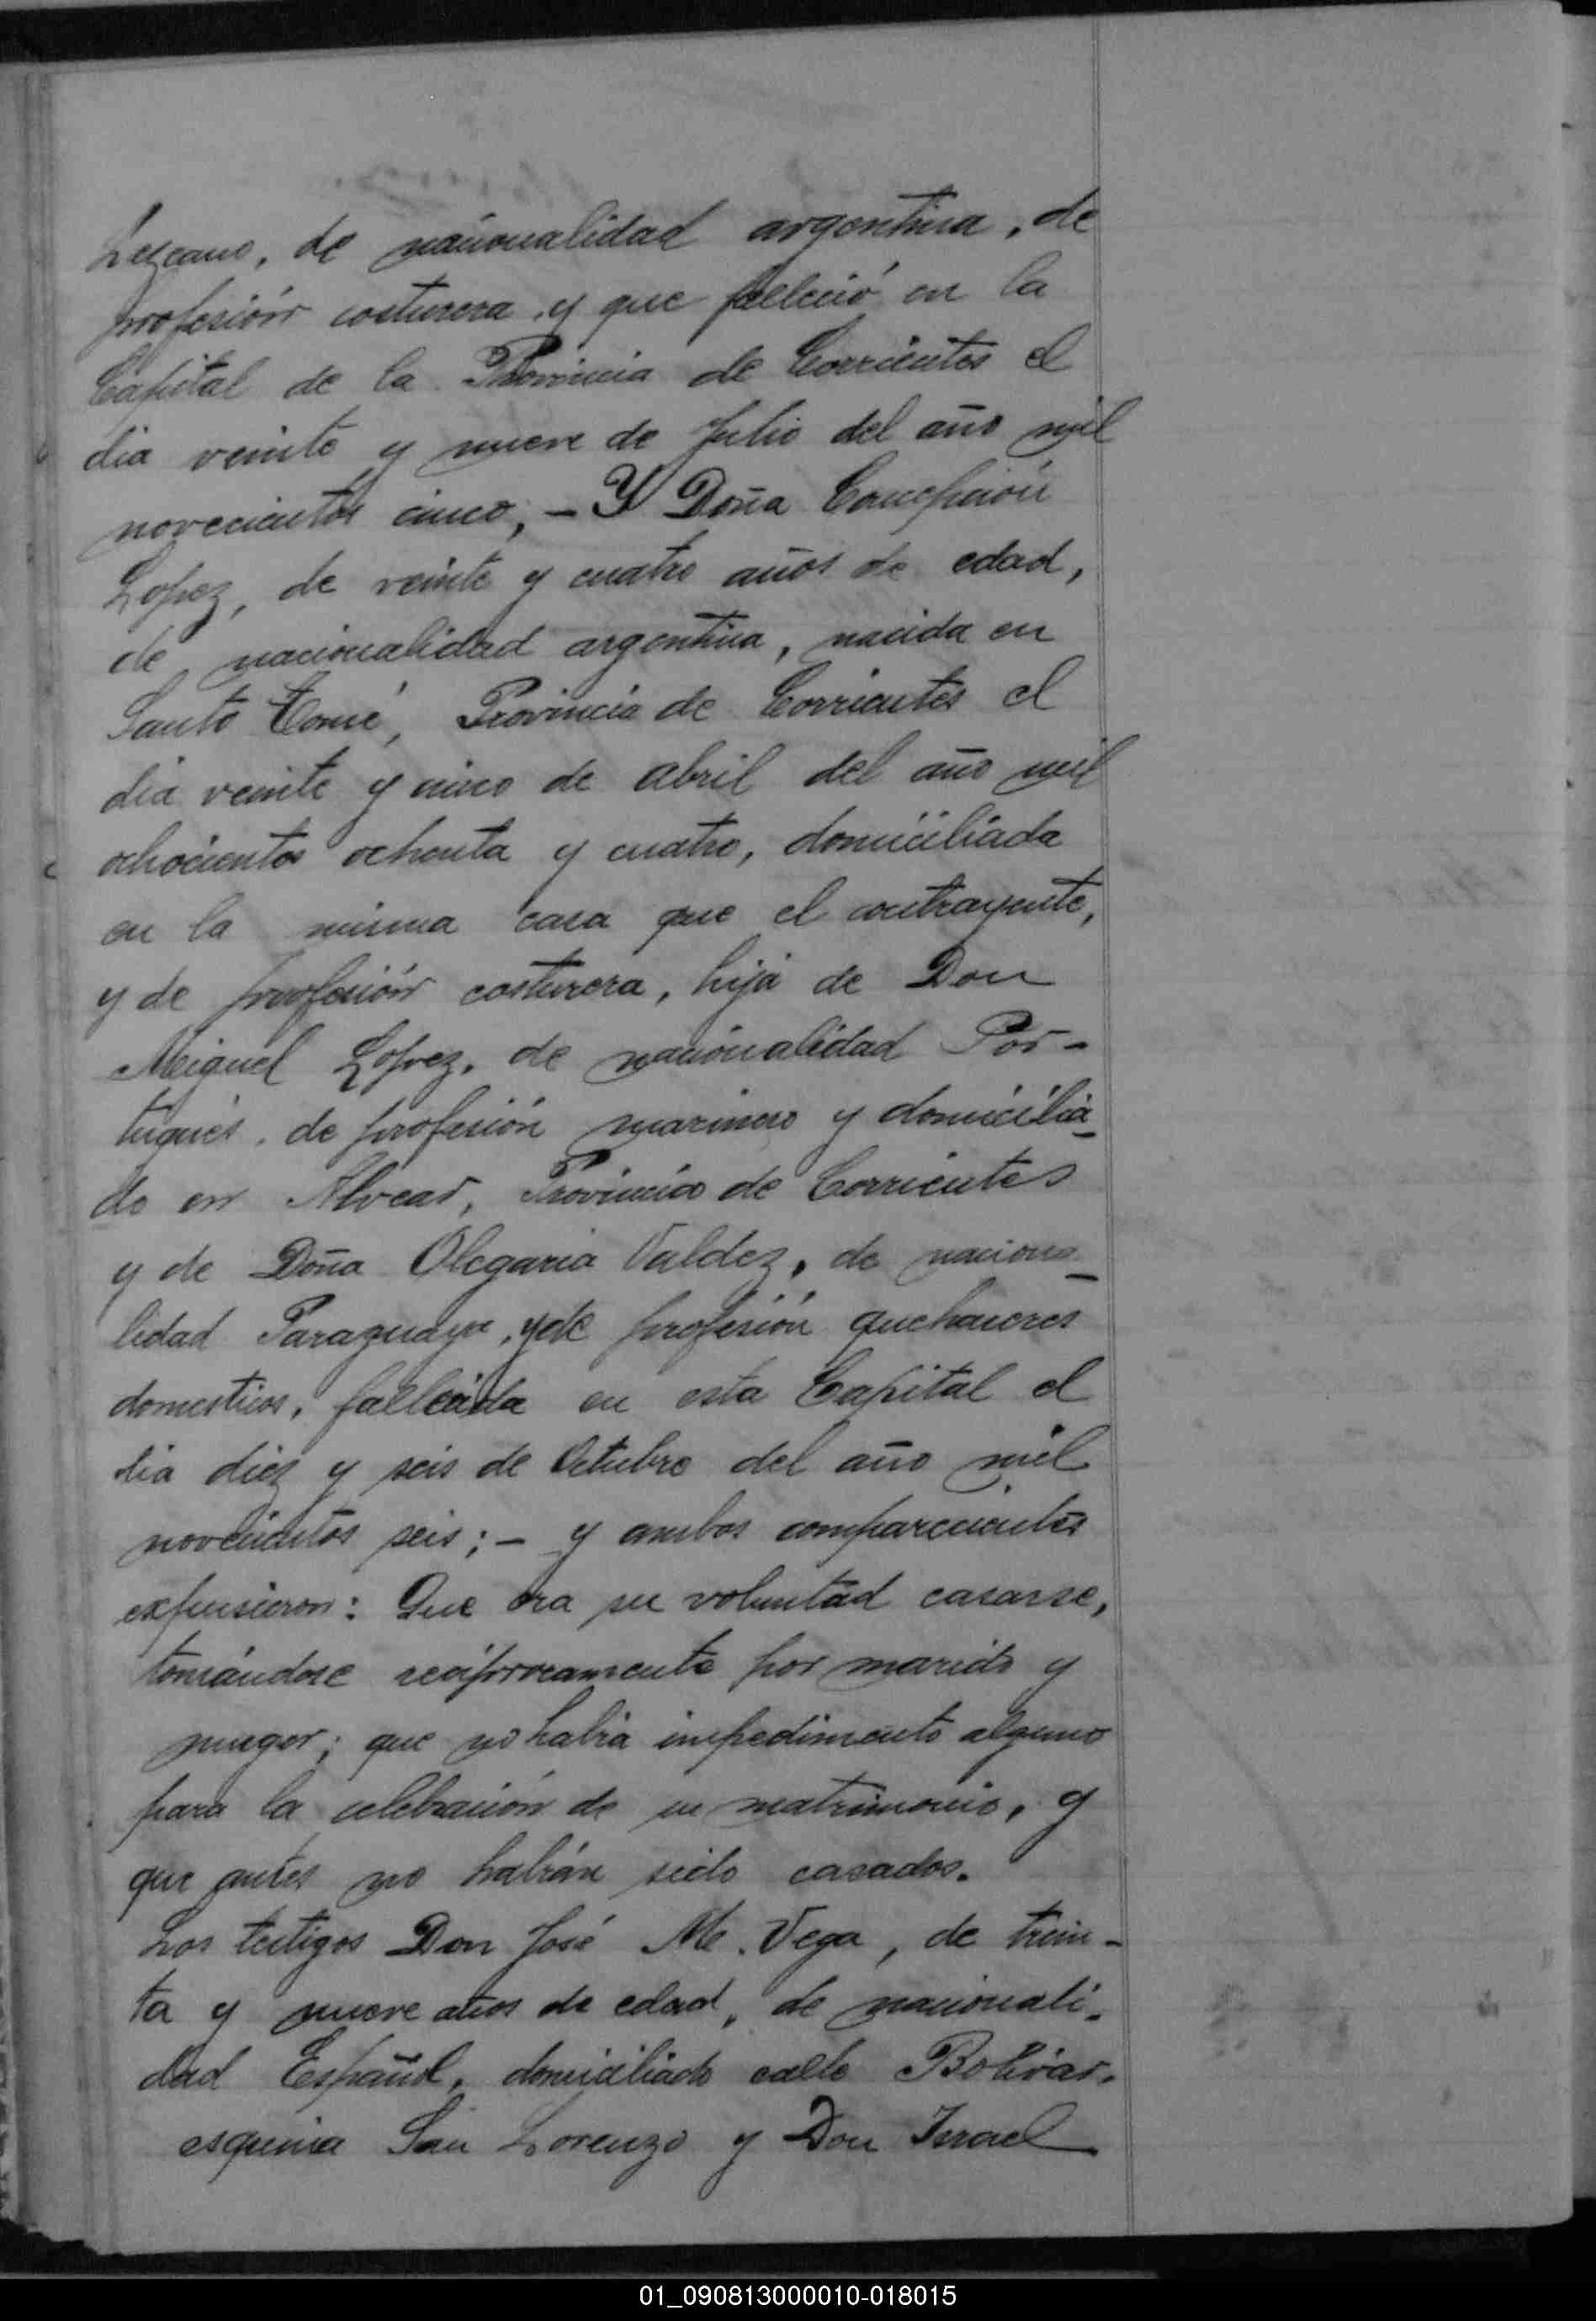 Lezcano, de nacionalidad argentina, de
profesión costurera, y que falleció en la
Capital de la Provincia de Corrientes el
dia veinte y nueve de Julio del año mil
novecientos cinco; – Y Doña Concepción
Lopez, de veinte y cuatro años de edad,
de nacionalidad argentina, nacida en
Santo Tomé, Provincia de Corrientes el
dia veinte y cinco de abril del año mil
ochocientos ochenta y cuatro, domiciliada
en la misma casa que el contrayente,
y de profesión costurera, hija de Don
Miguel López, de nacionalidad Por-
tugués, de profesión marinero y domicilia-
do en Alvear, Provincia de Corrientes
y de Doña Olegaria Valdez, de naciona-
lidad Paraguaya, y de profesión quehaceres
domesticos, fallecida en esta Capital el
dia diez y seis de Octubre del año mil
novecientos seis; – y ambos comparecientes
expusieron: Que era su voluntad casarse,
tomándose recíprocamente por marido y
muger; que no habia impedimento alguno
para la celebración de su matrimonio, y
que antes no habían sido casados.
Los testigos Don José M. Vega, de trein-
ta y nueve años de edad, de nacionali-
dad Español, domiciliado calle Bolivar,
esquina San Lorenzo y Don Israel
01_090813000010-018015